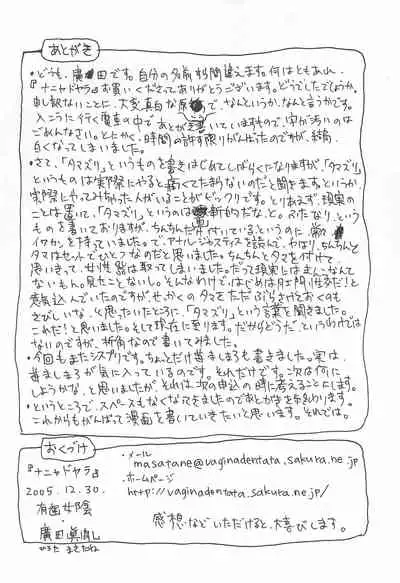 あとがき
・どうも、廣田です。自分の名前すら間違えます。何はともあれ、
『ナニャドヤラ』お買いくださってありがとうございます。どうでしたでしょうか。
申し訳ないことに、大変真白な原で、なんというか、なんと言うかです。
入こうに行く電車の中であとがき書いていますもので、字が汚いのは
ごめんなさい。とにかく、時間の許す限りがんばったのですが、結局、
白くなってしまいました。
・さて、「タマズリ」というものを書きはじめてしばらくになりますが、「タマズリ」
というものは実際にやると痛くてたまらないのだと聞きます。というか、
実際にやってみちゃった人がいることがビックリです。とりあえず、現実の
ことは置いて、「タマズリ」というのは新的だな、と。ふたなり、という
ものを書いておりますが、ちんちんだけ付いている、というのに常
イワカンを持っていました。で、アナル・ジャスティスを読んで、やはり、ちんちんと
タマはセットでひとつなのだと思いました。ちんちんとタマを付けて、
思いきって、女性器は取ってしまいました。だって現実にはまんこなんて
ないもん。見たことないし。そんなわけで、はじめは肛門性交だ!と
意気込んでいたのですが、せっかくのタマをただぶらさげておくのも
さびしいな、と思いたところに、「タマズリ」という言葉を聞きました。
これだ!と思いました。そして現在に至ります。だからどうだ、というわけでは
ないのですが、折角なので書いてみました。
・今回もまたシスプリです。ちょっとだけ苺ましまろも書きました。実は、
苺ましまろが気に入っているのです。それだけです。次は何に
しようかな、と思いましたが、それは次の申込の時に考えることにします。
・というところで、スペースもなくなてきましたのであとがきを終わります。
これからもがんばって漫画を書いていきたいと思います。それでは。
おくづけ
『ナニャドヤラ』
2005.12.30.
有歯女陰
・廣田眞胤
ひろた まさたね
・メール
masatane@vaginadentata.sakura.ne.jp
・ホームページ
http://vaginadentata.sakura.ne.jp/
感想などいただけると、大喜びします。